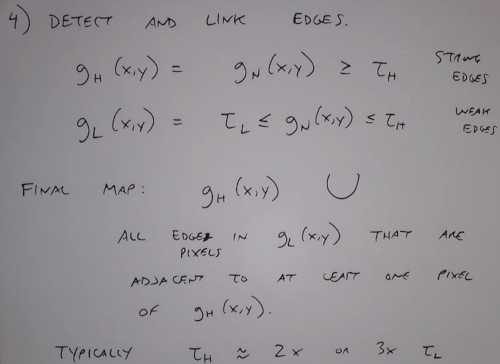 4) DETECT AND LINK EDGES.
g_H (x,y) = g_N (x,y) ≥ τ_H STRONG EDGES
g_L (x,y) = τ_L ≤ g_N (x,y) ≤ τ_H WEAK EDGES
FINAL MAP: g_H (x,y) ∪
ALL EDGE PIXELS IN g_L (x,y) THAT ARE
ADJACENT TO AT LEAST ONE PIXEL
OF g_H (x,y).
TYPICALLY τ_H ≈ 2x OR 3x τ_L